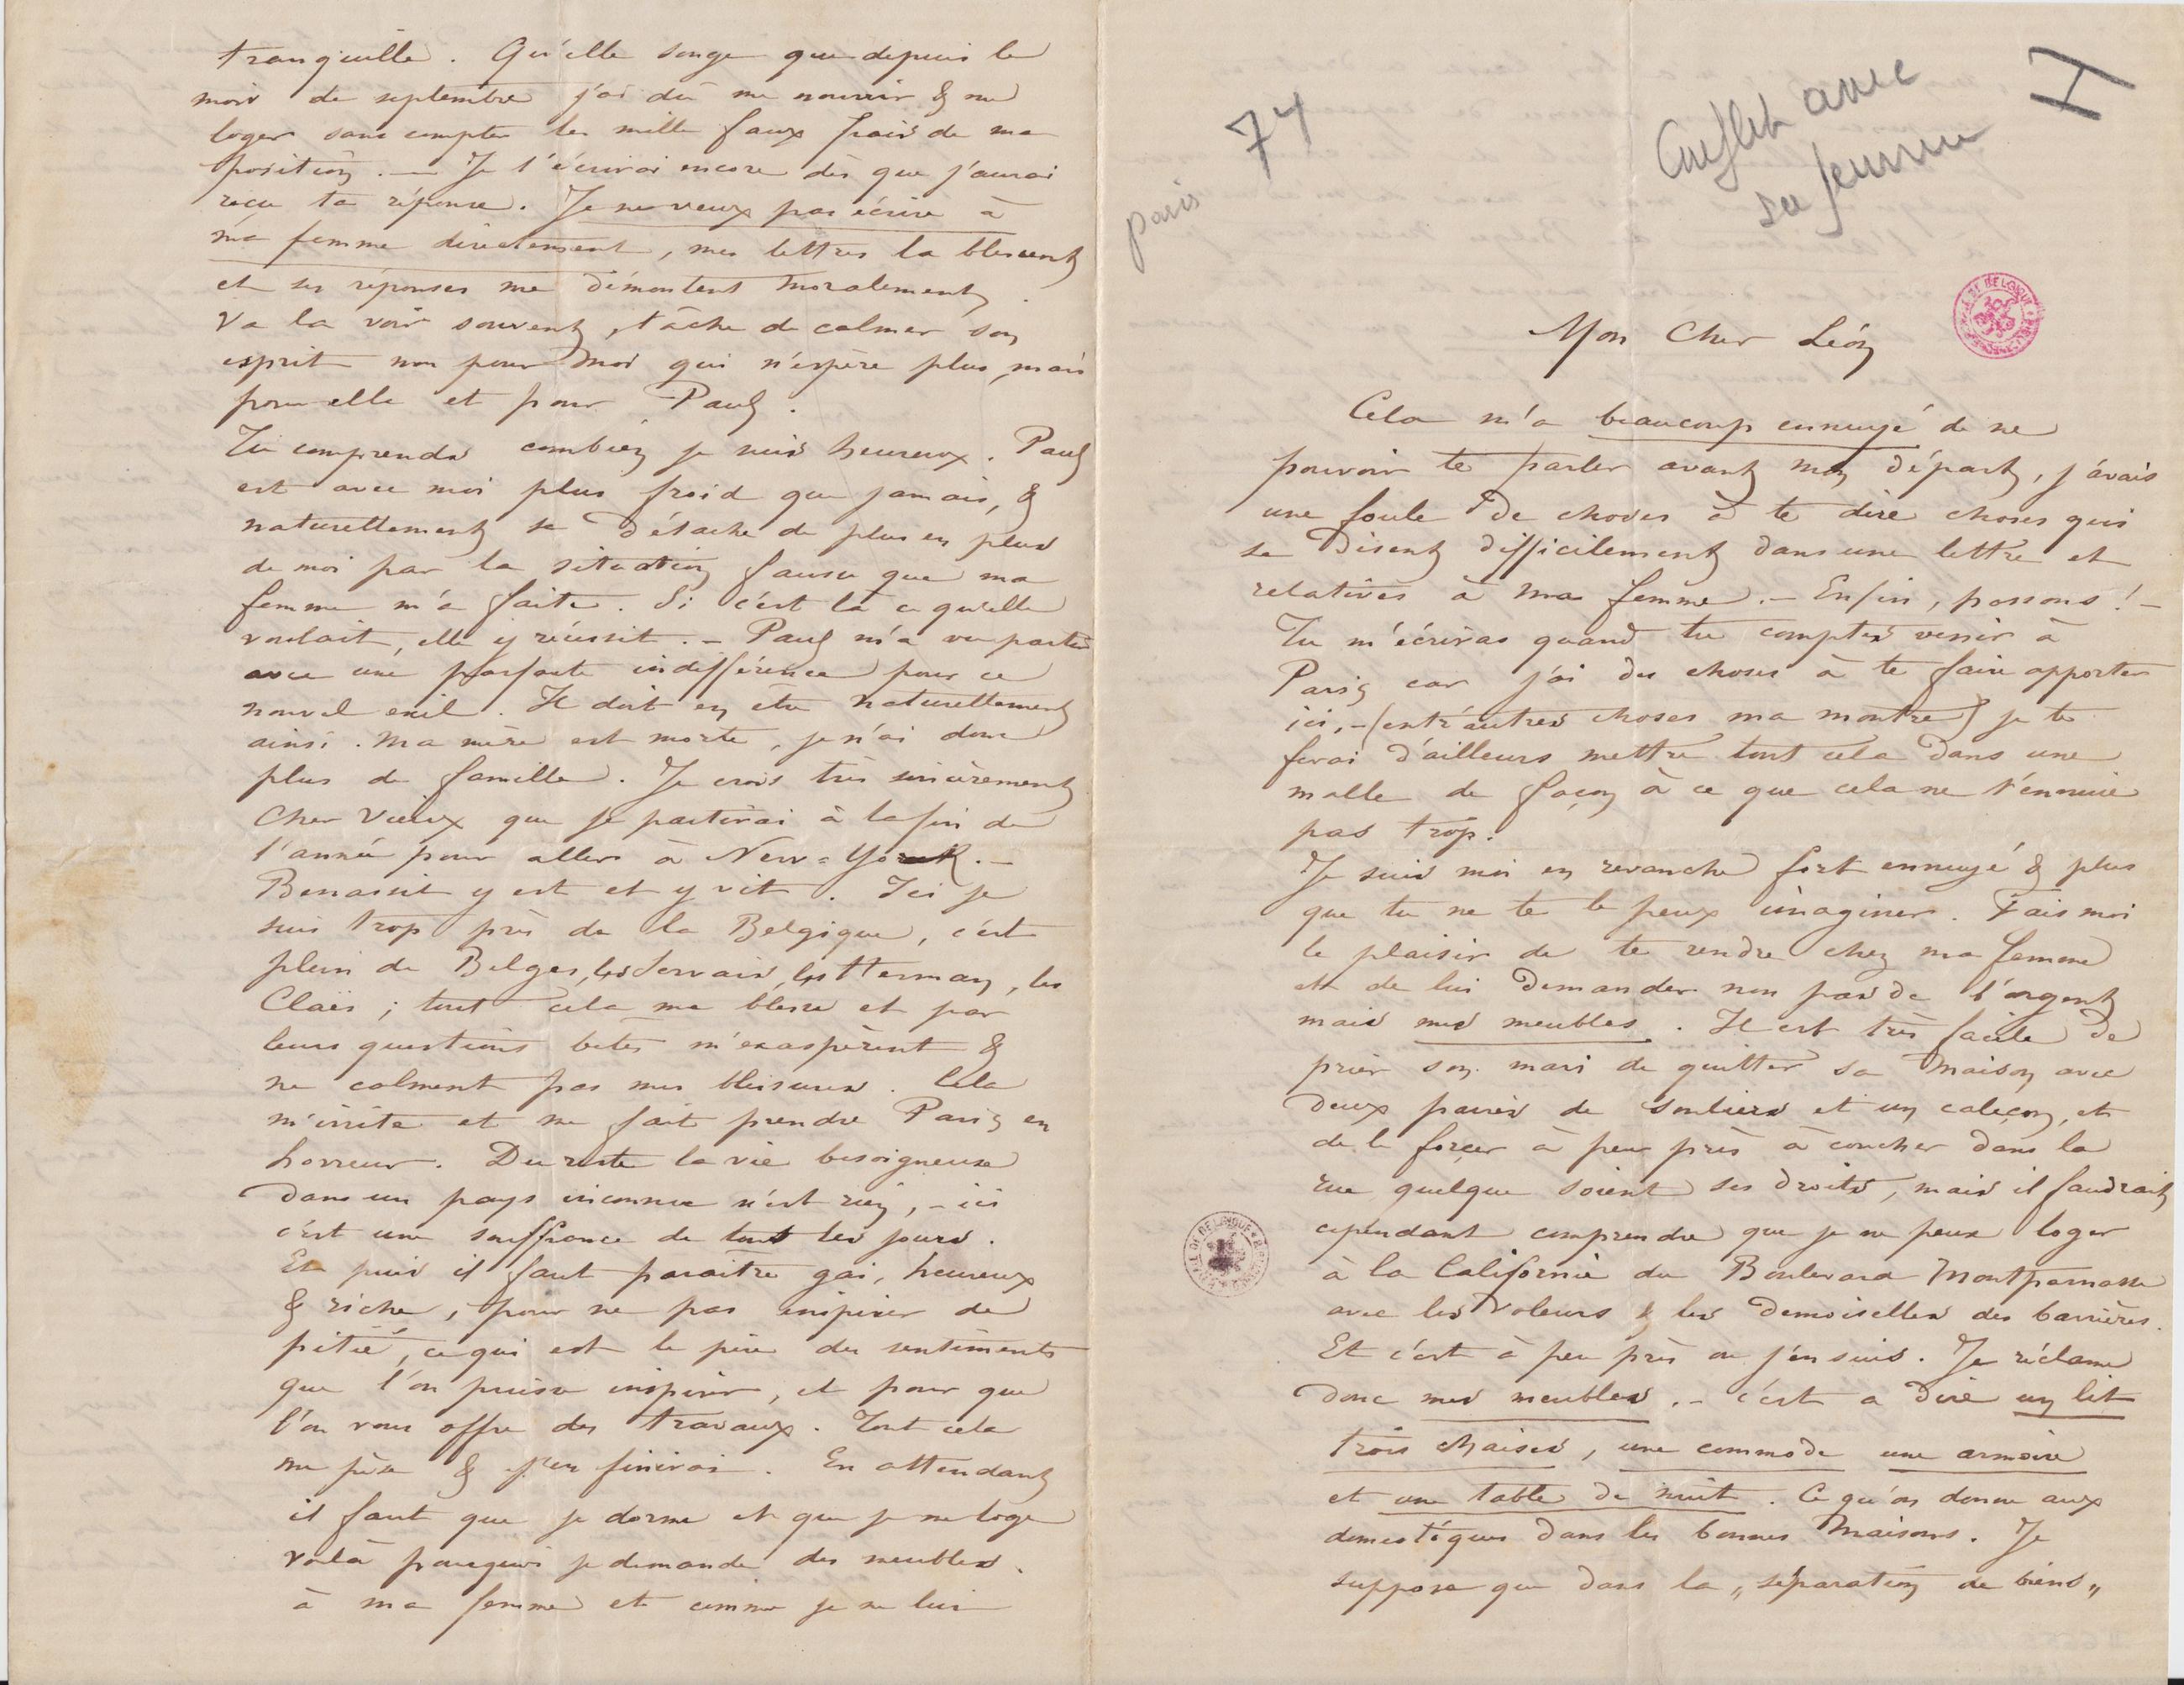 tranquille. Qu'elle songe que depuis le
mois de septembre j'ai dû me nourrir & me
loger sans compter les mille faux frais de ma
position. — Je t'écrirai encore dès que j'aurai
reçu ta réponse. Je ne veux pas écrire à
ma femme directement, mes lettres la blessent
et ses réponses me démontent moralement.
Va la voir souvent, tâche de calmer son
esprit non pour moi qui n'espère plus, mais
pour elle et pour Paul.
Tu comprends combien je suis heureux. Paul
est avec moi plus froid que jamais, &
naturellement se détache de plus en plus
de moi par la situation fausse que ma
femme m'a faite. Si c'est là ce qu'elle
voulait, elle y réussit. — Paul m'a vu partir
avec une parfaite indifférence pour ce
nouvel exil. Il doit en être naturellement
ainsi. Ma mère est morte, je n'ai donc
plus de famille. Je crois très sincèrement
cher vieux que je partirai à la fin de
l'année pour aller à New=Yorck. —
Benassit y est et y vit. Ici je
suis trop près de la Belgique, c'est
plein de Belges, les Servais, les Herman, les
Claës ; tout cela me blesse et par
leurs questions bêtes m'exaspèrent &
ne calment pas mes blessures. Cela
m'irrite et me fait prendre Paris en
horreur. Du reste la vie besoigneuse
dans un pays inconnu n'est rien, — ici
c'est une souffrance de tout les jours.
Et puis il faut paraitre gai, heureux
& riche, pour ne pas inspirer de
pitié, ce qui est le pire des sentiments
que l'on puisse inspirer, et pour que
l'on vous offre des travaux. Tout cela
me pèse & j'en finirai. En attendant
il faut que je dorme et que je me loge
voilà pourquoi je demande des meubles.
à ma femme et comme je ne lui
paris
74
Conflit avec
sa femme
H
Mon Cher Léon
Cela m'a beaucoup ennuyé de ne
pouvoir te parler avant mon départ, j'avais
une foule de choses à te dire choses qui
se disent difficilement dans une lettre et
relatives à ma femme. — Enfin, passons! —
Tu m'écriras quand tu comptes venir à
Paris car j'ai des choses à te faire apporter
ici, — (entr'autres choses ma montre) je te
ferai d'ailleurs mettre tout cela dans une
malle de façon à ce que cela ne t'ennuie
pas trop.
Je suis moi en revanche fort ennuyé & plus
que tu ne te le peux imaginer. Fais moi
le plaisir de te rendre chez ma femme
et de lui demander non pas de l'argent
mais mes meubles. Il est très facile de
prier son mari de quitter sa maison avec
deux paires de souliers et un caleçon, et
de le forcer à peu près à coucher dans la
rue quelque soient ses droits, mais il faudrait
cependant comprendre que je ne peux loger
à la Californie du Boulevard Montparnasse
avec les voleurs & les demoiselles des barrières.
Et c'est à peu près ou j'en suis. Je réclame
donc mes meubles. — c'est a dire un lit
trois chaises, une commode une armoire
et une table de nuit. Ce qu'on donne aux
domestiques dans les bonnes maisons. Je
suppose que dans la „séparation de biens„